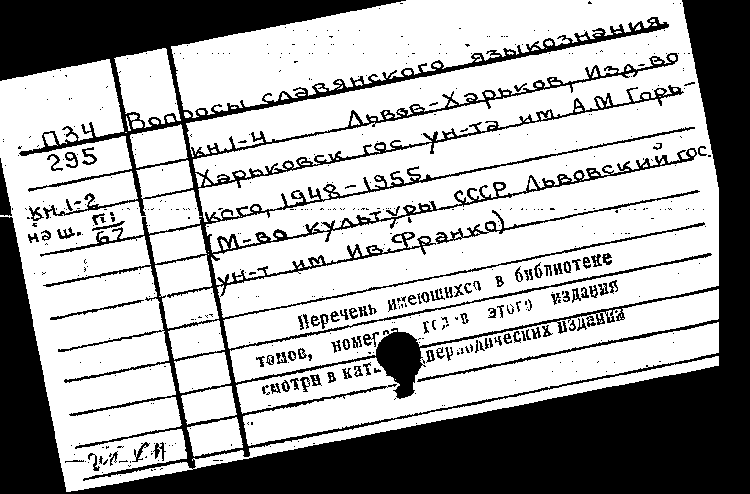 Вопросы славянского языкознания.
П34
295
кн. 1-4. Львов-Харьков, Изд-во
Харьковск. гос. ун-та им. А.М Горь-
кого, 1948-1955.
кн. 1-2
на ш. П1
67
(М-во культуры СССР. Львовский гос.
ун-т им. Ив. Франко).
Перечень имеющихся в библиотеке
томов, номеров, годов этого издания
смотри в периодических изданий